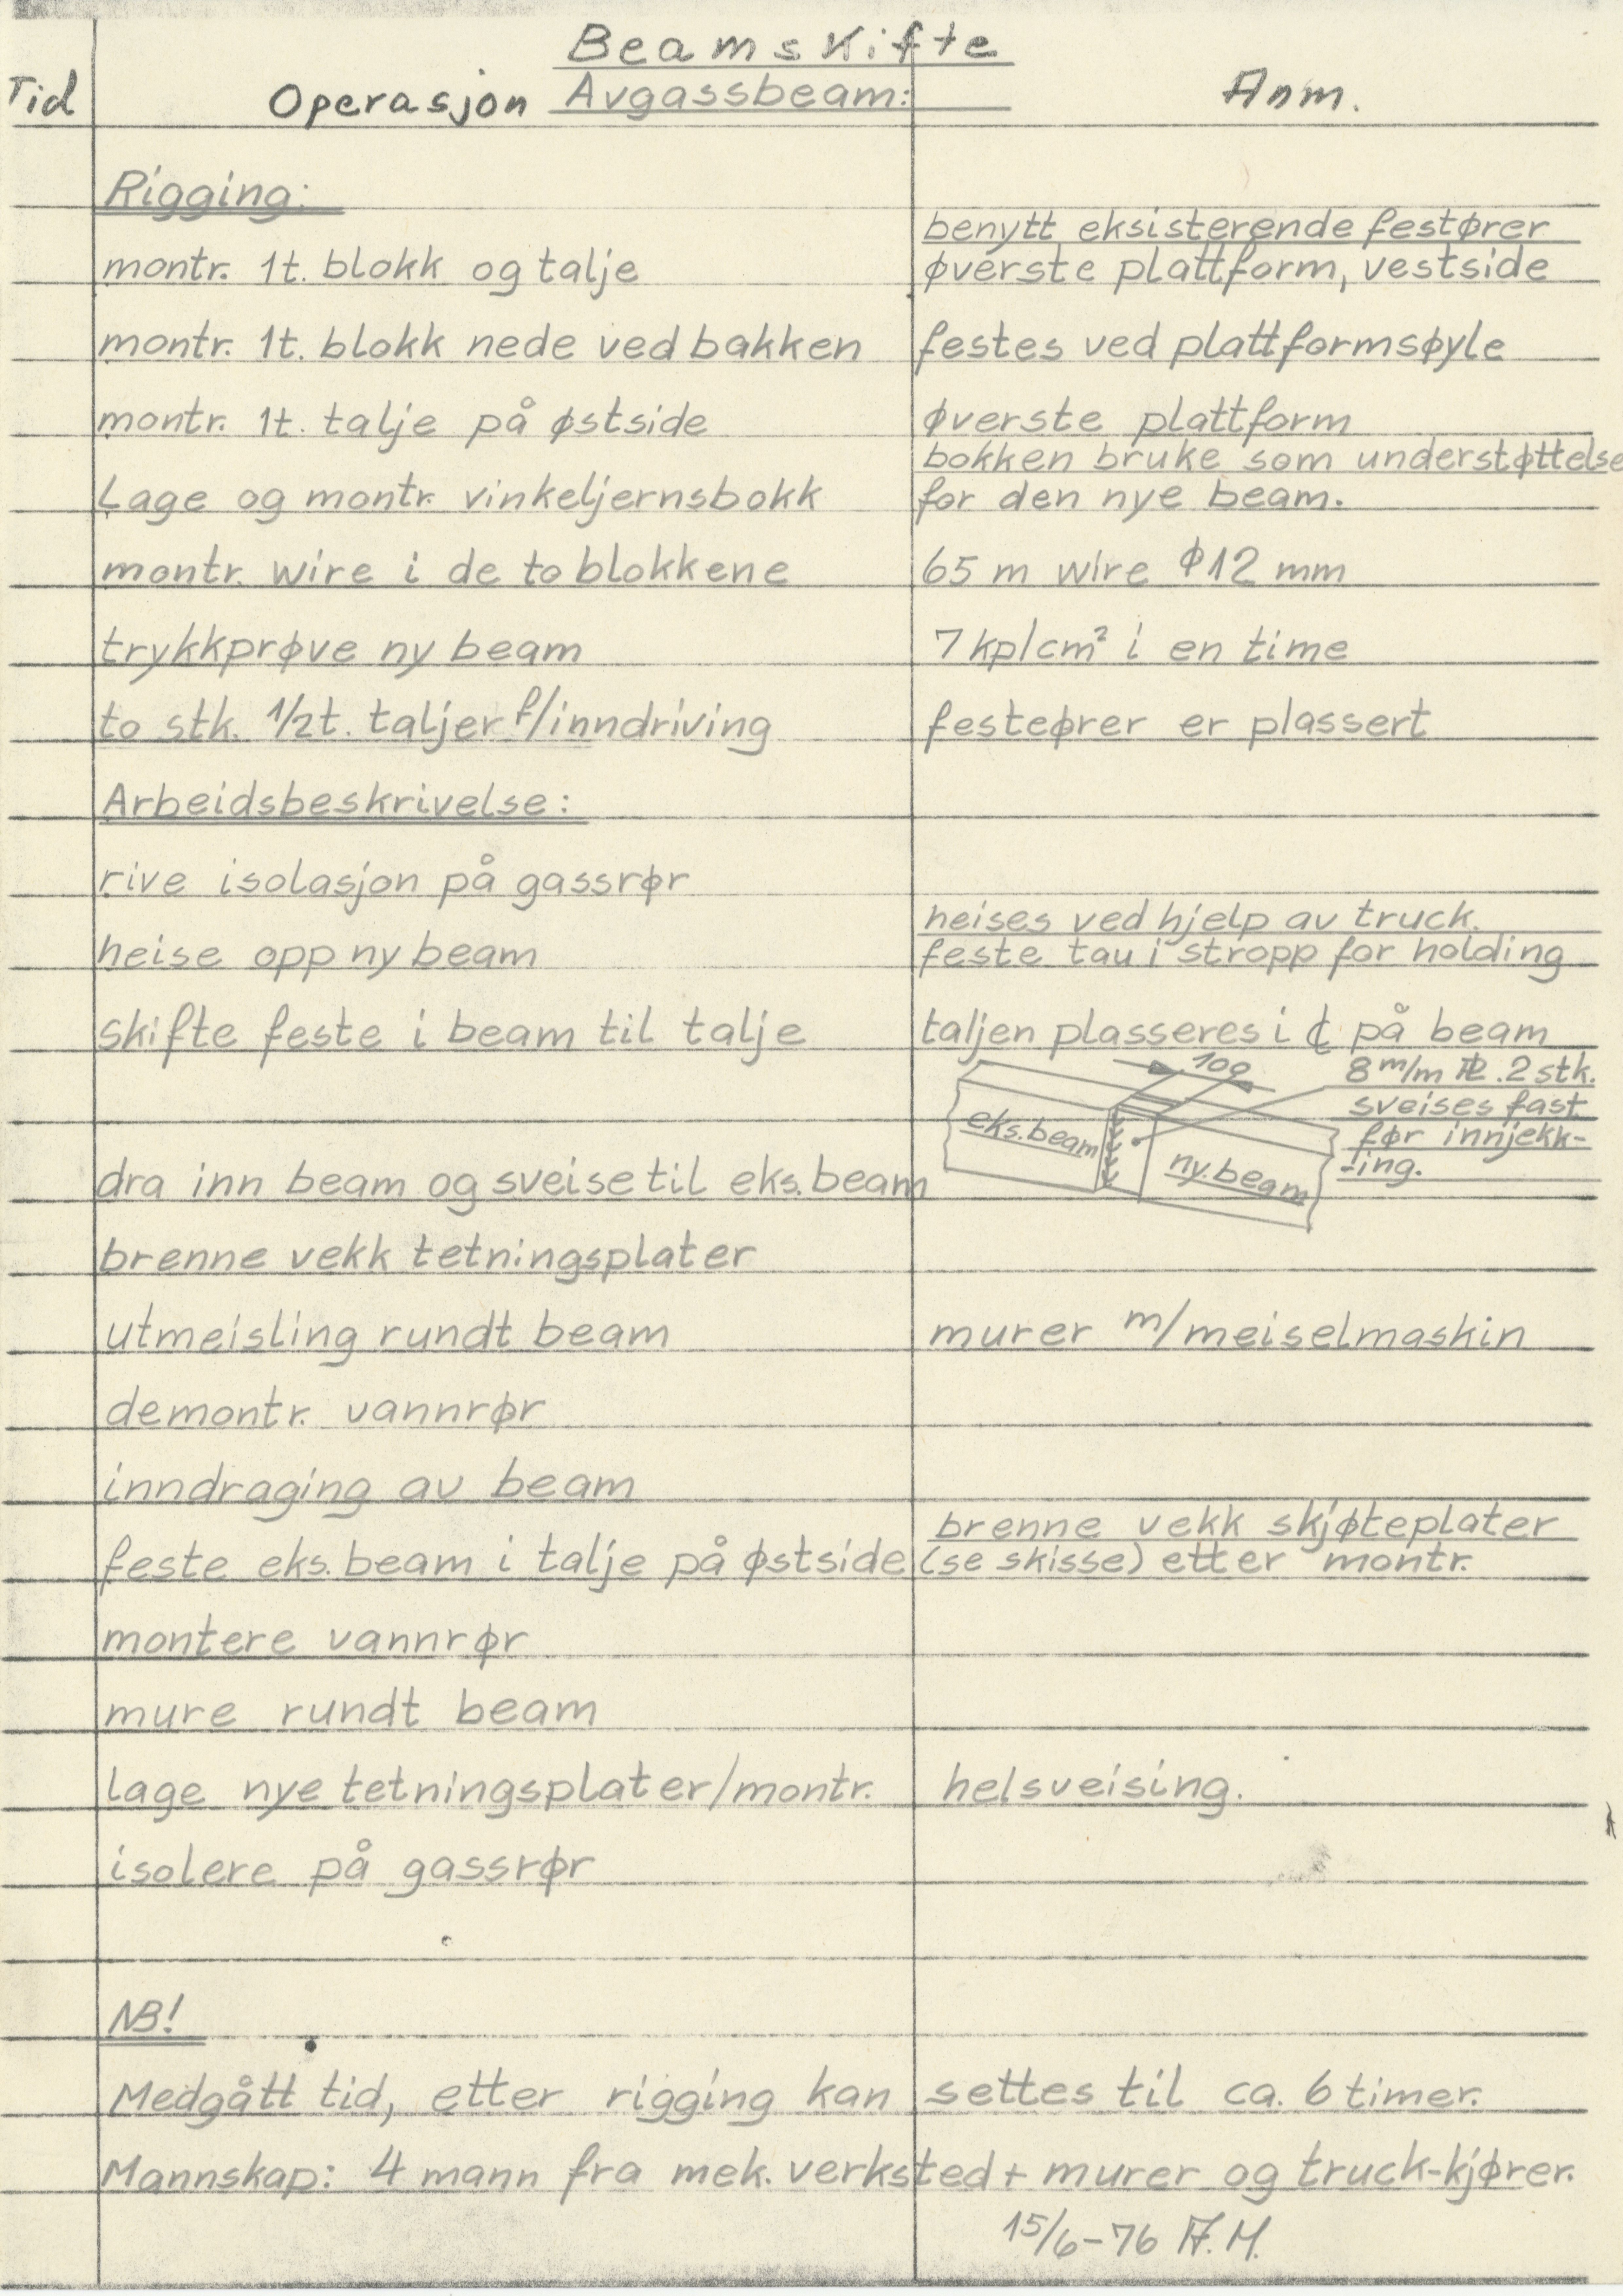 Beamskifte
Tid Operasjon Avgassbeam: Anm.
Rigging:
benytt eksisterende festører
montr. 1t. blokk og talje øverste plattform, vestside
montr. 1t. blokk nede ved bakken festes ved plattformsøyle
montr. 1t. talje på østside øverste plattform
bokken bruke som understøttelse
Lage og montr. vinkeljernsbokk for den nye beam.
montr. wire i de to blokkene 65 m wire ϕ12 mm
trykkprøve ny beam 7 kp/cm² i en time
to stk. 1/2t. taljer f/inndriving festeører er plassert
Arbeidsbeskrivelse:
rive isolasjon på gassrør
heises ved hjelp av truck.
heise opp ny beam feste tau i stropp for holding
skifte feste i beam til talje taljen plasseres i ℄ på beam
100 8 m/m PL. 2 stk.
sveises fast
eks. beam før innjekk-
ny. beam -ing.
dra inn beam og sveise til eks. beam
brenne vekk tetningsplater
utmeisling rundt beam murer m/meiselmaskin
demontr. vannrør
inndraging av beam
brenne vekk skjøteplater
feste eks. beam i talje på østside (se skisse) etter montr.
montere vannrør
mure rundt beam
lage nye tetningsplater/montr. helsveising.
isolere på gassrør
NB!
Medgått tid, etter rigging kan settes til ca. 6 timer.
Mannskap: 4 mann fra mek. verksted + murer og truck-kjører.
15/6-76 A.M.